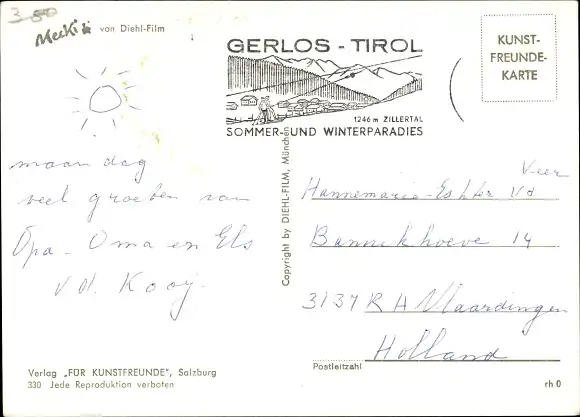 3.50
Mecki von Diehl-Film
GERLOS - TIROL
1246 m ZILLERTAL
SOMMER- UND WINTERPARADIES
KUNST-
FREUNDE-
KARTE
maandag
veel groeten van
Opa - Oma en Els
v.d. Kooij.
Copyright by DIEHL-FILM, München
Veer
Hannemarie-Esther vd
Bannikhoeve 14
3137 RH Vlaardingen
Holland
Postleitzahl
Verlag „FÜR KUNSTFREUNDE", Salzburg
330 Jede Reproduktion verboten
rh 0